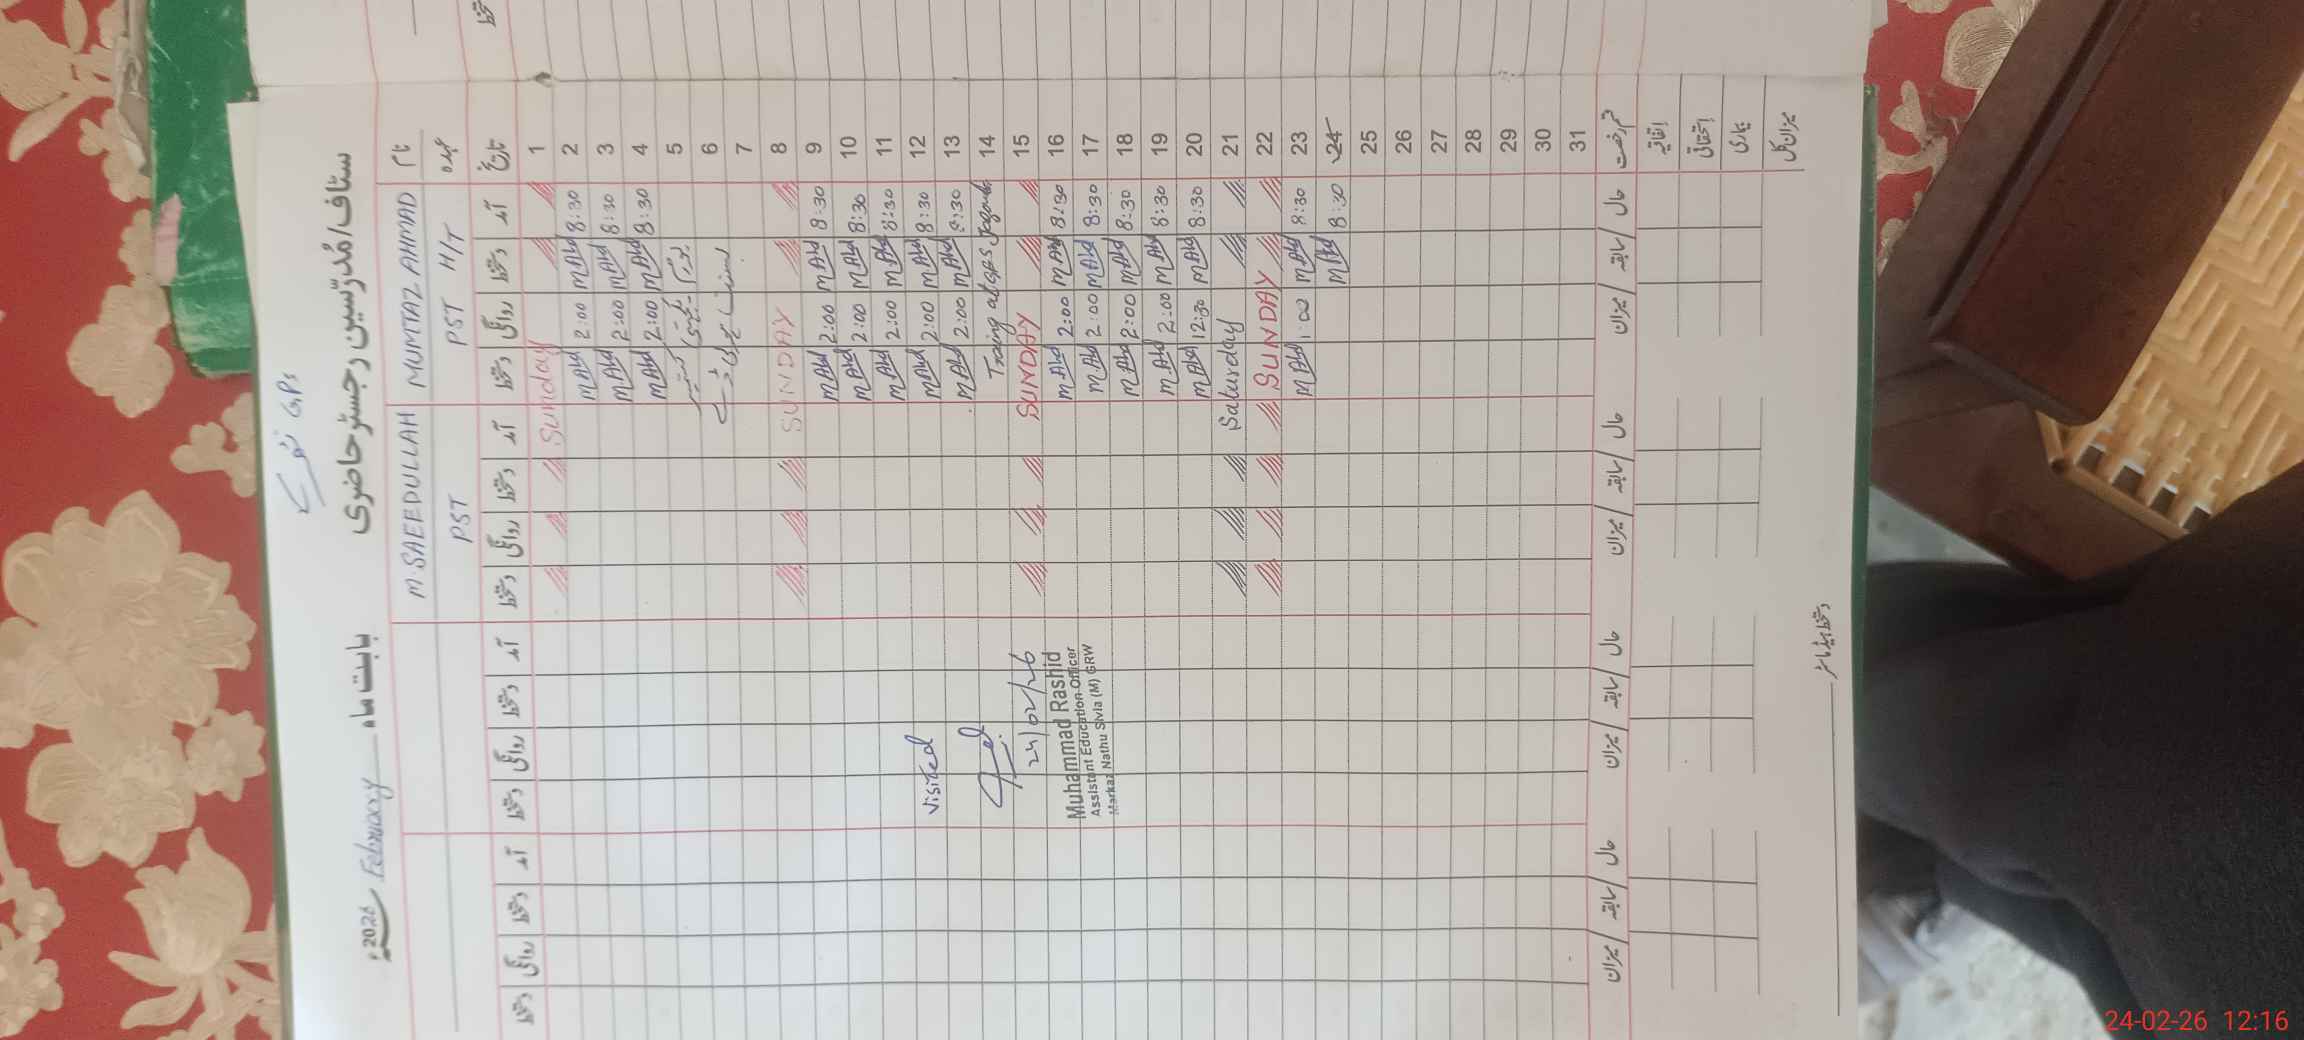 GPS
سٹاف/مُدرّسین رجسٹر حاضری
بابت ماہ February 2026ء
نام MUMTAZ AHMAD M.SAEEDULLAH
عہدہ PST H/T PST
تاریخ آمد دستخط روانگی دستخط آمد دستخط روانگی دستخط آمد دستخط روانگی دستخط آمد دستخط روانگی دستخط
1 Sunday
2 8:30 MAhd 2:00 MAhd
3 8:30 MAhd 2:00 MAhd
4 8:30 MAhd 2:00 MAhd
5
6
7
8 SUNDAY
9 8:30 MAhd 2:00 MAhd
10 8:30 MAhd 2:00 MAhd
11 8:30 MAhd 2:00 MAhd
12 8:30 MAhd 2:00 MAhd
13 8:30 MAhd 2:00 MAhd
14 Traing at GPS
15 SUNDAY
16 8:30 MAhd 2:00 MAhd
17 8:30 MAhd 2:00 MAhd
18 8:30 MAhd 2:00 MAhd
19 8:30 MAhd 2:00 MAhd
20 8:30 MAhd 12:30 MAhd
21 Saturday
22 SUNDAY
23 8:30 MAhd 1:00 MAhd
24 8:30 MAhd
25
26
27
28
29
30
31
Visited
24/02/26
Muhammad Rashid
Assistant Education Officer
Markaz Nathu Sivia (M) GRW
قسم رخصت حال / سابقہ / میزان حال / سابقہ / میزان حال / سابقہ / میزان حال / سابقہ / میزان
اتفاقیہ
استحقاقی
بیماری
میزان کل
دستخط ہیڈماسٹر
24-02-26 12:16